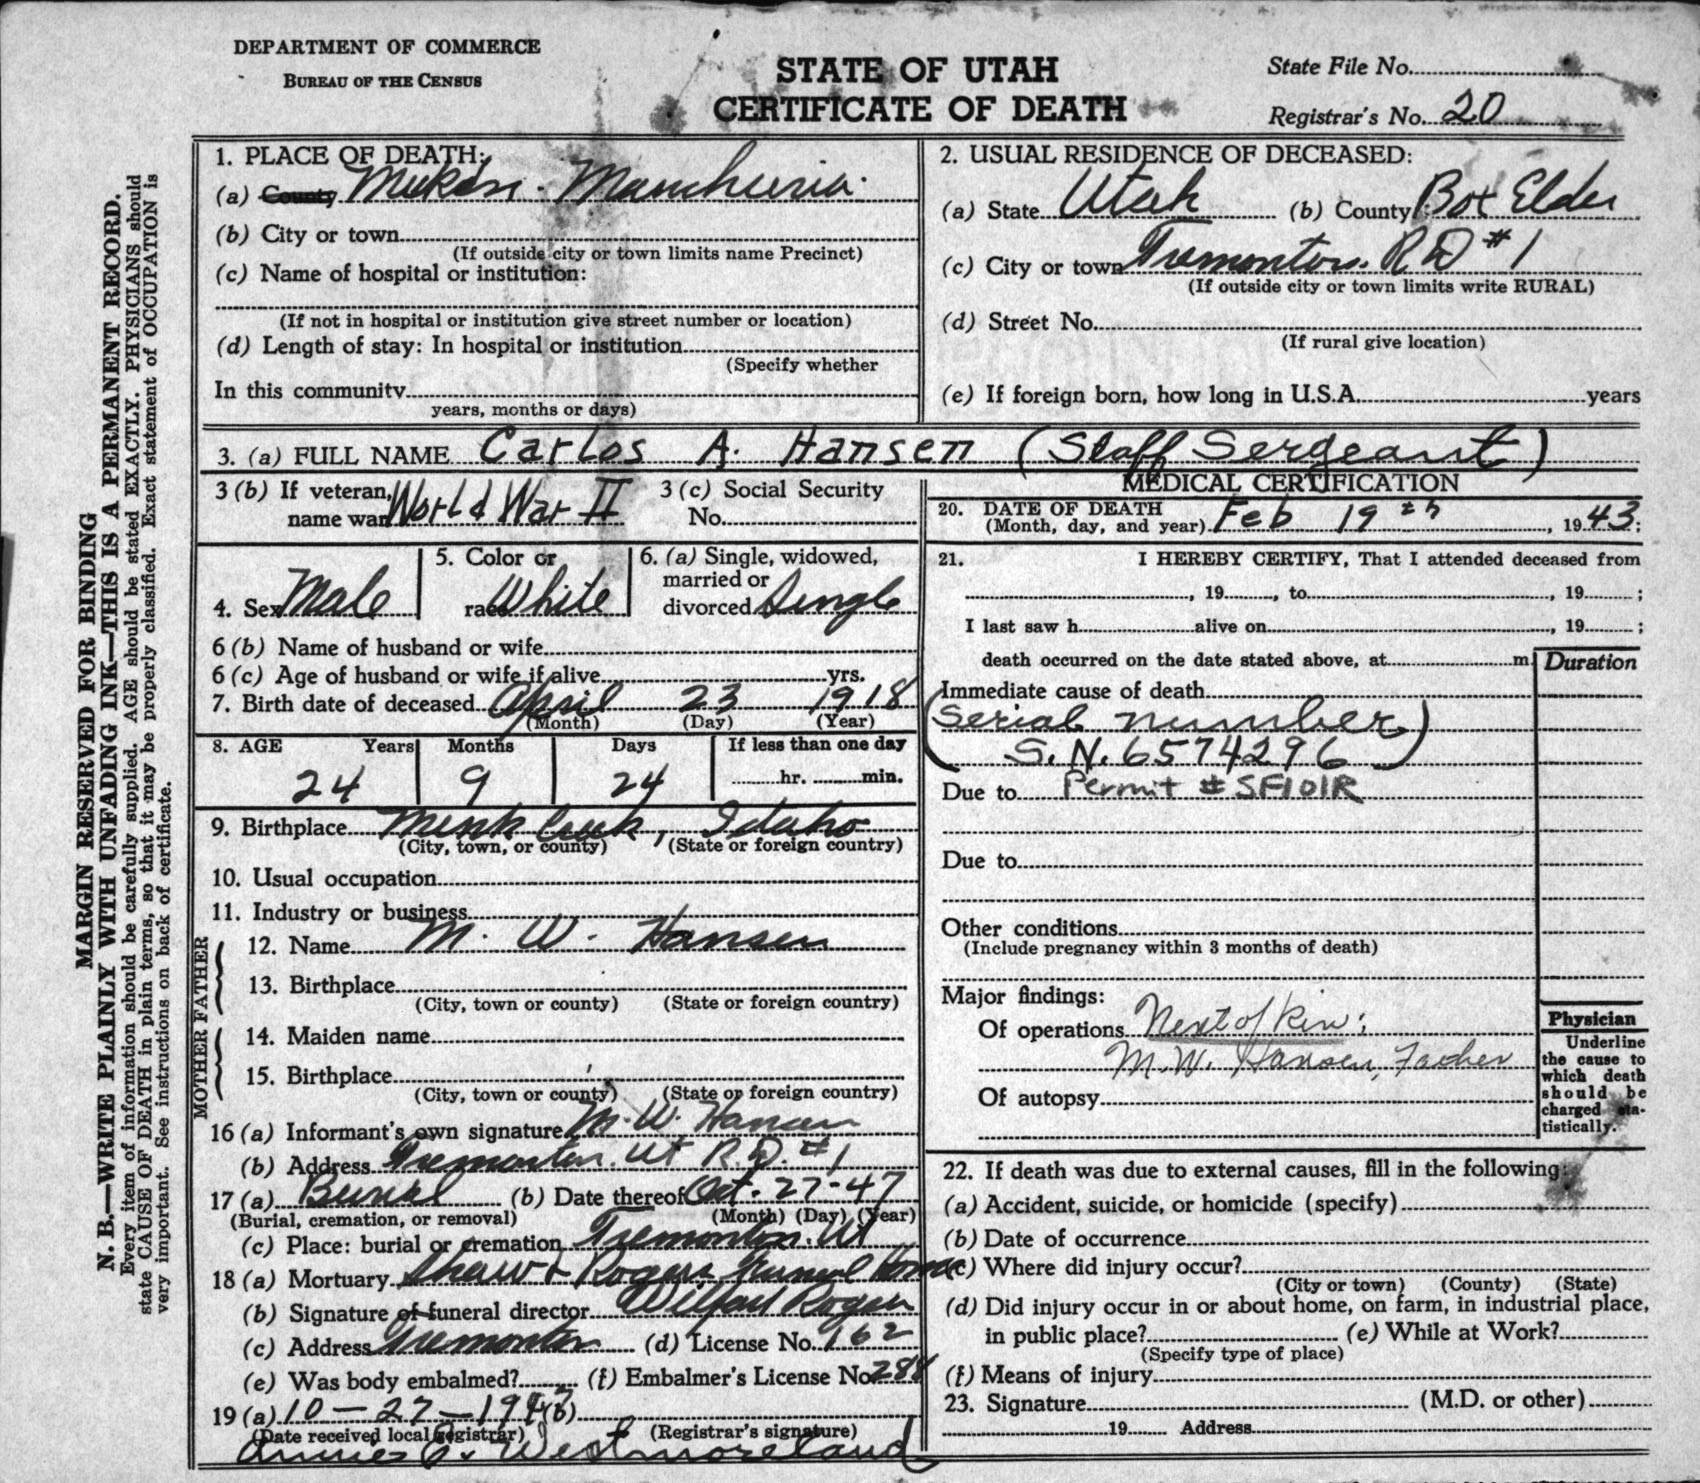 DEPARTMENT OF COMMERCE
BUREAU OF THE CENSUS
STATE OF UTAH
CERTIFICATE OF DEATH
State File No.
Registrar's No. 20
MARGIN RESERVED FOR BINDING
N. B.—WRITE PLAINLY WITH UNFADING INK—THIS IS A PERMANENT RECORD.
Every item of information should be carefully supplied. AGE should be stated EXACTLY. PHYSICIANS should
state CAUSE OF DEATH in plain terms, so that it may be properly classified. Exact statement of OCCUPATION is
very important. See instructions on back of certificate.
1. PLACE OF DEATH:
(a) County Mukden. Manchuria.
(b) City or town
(If outside city or town limits name Precinct)
(c) Name of hospital or institution:
(If not in hospital or institution give street number or location)
(d) Length of stay: In hospital or institution
(Specify whether
In this community
years, months or days)
2. USUAL RESIDENCE OF DECEASED:
(a) State Utah (b) County Box Elder
(c) City or town Tremonton. R D #1
(If outside city or town limits write RURAL)
(d) Street No.
(If rural give location)
(e) If foreign born, how long in U.S.A. years
3. (a) FULL NAME Carlos A. Hansen (Staff Sergeant)
3 (b) If veteran, name war World War II
3 (c) Social Security No.
4. Sex Male
5. Color or race White
6. (a) Single, widowed, married or divorced Single
6 (b) Name of husband or wife
6 (c) Age of husband or wife if alive yrs.
7. Birth date of deceased April 23 1918
(Month) (Day) (Year)
8. AGE Years Months Days If less than one day
24 9 24 hr. min.
9. Birthplace Mink Creek, Idaho
(City, town, or county) (State or foreign country)
10. Usual occupation
11. Industry or business
FATHER
12. Name M. W. Hansen
13. Birthplace
(City, town or county) (State or foreign country)
MOTHER
14. Maiden name
15. Birthplace
(City, town or county) (State or foreign country)
16 (a) Informant's own signature M. W. Hansen
(b) Address Tremonton. Ut R.D. #1
17 (a) Burial (b) Date thereof Oct. 27-47
(Burial, cremation, or removal) (Month) (Day) (Year)
(c) Place: burial or cremation Tremonton. Ut
18 (a) Mortuary Shaw & Rogers Funeral Home
(b) Signature of funeral director Wilford Rogers
(c) Address Tremonton (d) License No. 162
(e) Was body embalmed? (f) Embalmer's License No. 288
19 (a) 10-27-1947 (b)
(Date received local registrar) (Registrar's signature)
Annie C. Westmoreland
MEDICAL CERTIFICATION
20. DATE OF DEATH
(Month, day, and year) Feb 19th, 1943;
21. I HEREBY CERTIFY, That I attended deceased from
, 19 , to , 19 ;
I last saw h alive on , 19 ;
death occurred on the date stated above, at m.
Duration
Immediate cause of death
(Serial number
S.N. 6574296)
Due to Permit # SF101R
Due to
Other conditions
(Include pregnancy within 3 months of death)
Major findings:
Of operations Next of kin:
M.W. Hansen, Father
Of autopsy
Physician
Underline
the cause to
which death
should be
charged sta-
tistically.
22. If death was due to external causes, fill in the following:
(a) Accident, suicide, or homicide (specify)
(b) Date of occurrence
(c) Where did injury occur?
(City or town) (County) (State)
(d) Did injury occur in or about home, on farm, in industrial place,
in public place? (e) While at Work?
(Specify type of place)
(f) Means of injury
23. Signature (M.D. or other)
19 Address